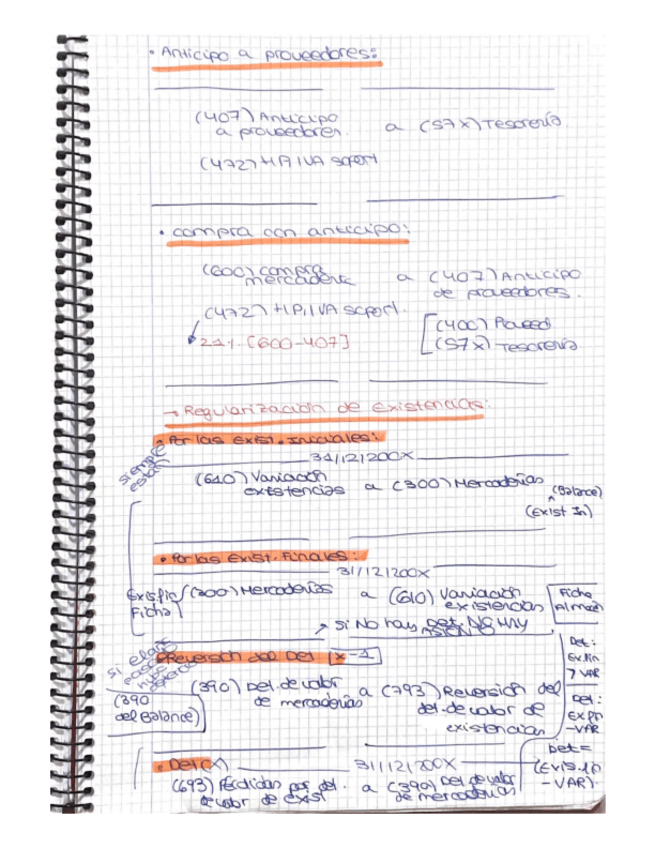 • Anticipo a proveedores:
(407) Anticipo a (57X) Tesorería.
a proveedores.
(472) H.P. IVA soport
• compra con anticipo:
(600) compra a (407) Anticipo
mercadería de proveedores.
(472) H.P. IVA soport. (400) Proveed
21% [600-407] (57X) Tesorería
→ Regularización de existencias:
• Por las exist. Iniciales:
siempre
están
31/12/200X
(610) Variación a (300) Mercaderías (Balance)
existencias (Exist In)
• Por las Exist. Finales:
31/12/200X
(300) Mercaderías a (610) Variación
existencias
Ficha
Almacén
Ficha
si NO hay det. NO HAY
Reversión del Det X-1
si el año
(390
del Balance)
(390) Det. de valor a (793) Reversión del
de mercaderías det. de valor de
existencias
Det:
Det:
-VAR
Det=
- VAR)
• Det (X)
31/12/200X
(693) Pérdidas por det. a (390) Det de valor
de valor de exist de mercaderías